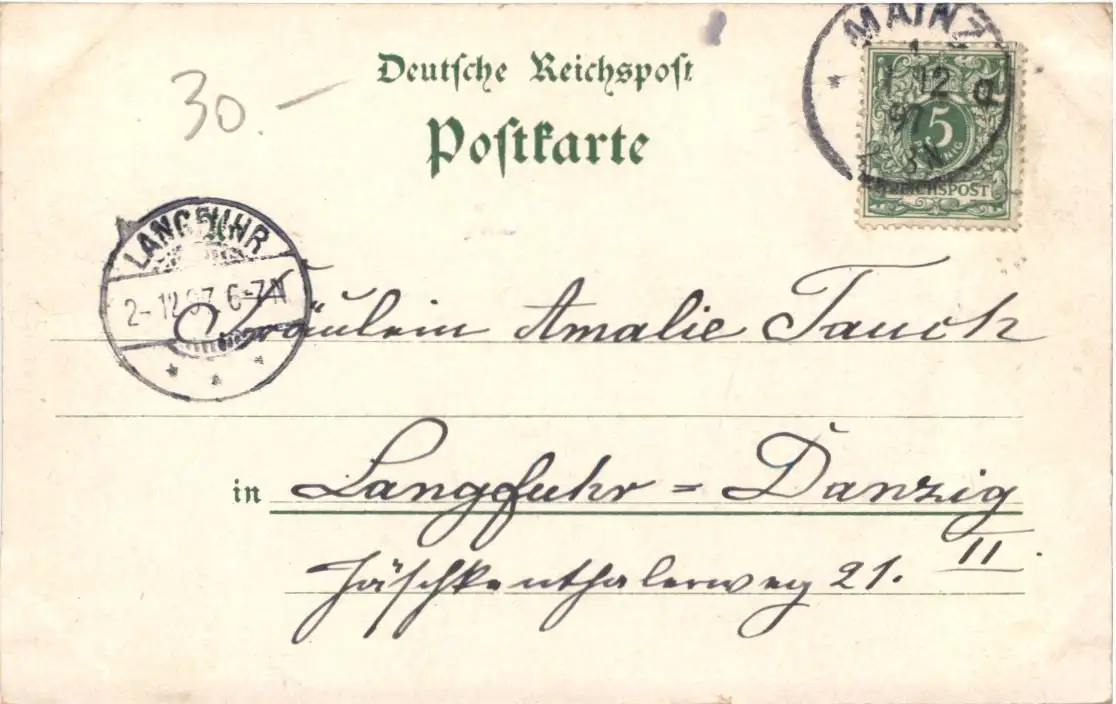 MAINZ
1 12
97
5
REICHSPOST
Deutsche Reichspost
Postkarte
30.—
LANGFUHR
2-12 97 6-7N
Fräulein Amalie Tauch
in Langfuhr = Danzig
Jäschkenthalerweg 21. II